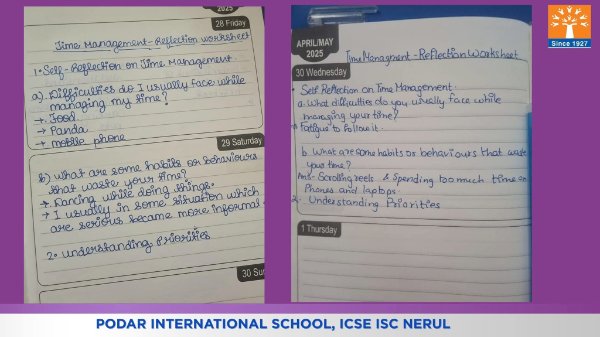 2025
28 Friday
Time Management - Reflection worksheet
1. Self - Reflection on Time Management
a). Difficulties do I usually face while
managing my time?
→ Food
→ Panda
→ mobile phone
29 Saturday
b) what are some habits or behaviours
that waste your time?
→ Dancing while doing things.
→ I usually in some situation which
are serious became more informal
2. understanding Priorities
30 Sun
APRIL/MAY
2025
Time Managment - Reflection Worksheet
30 Wednesday
Self Reflection on Time Management.
a. What difficulties do you usually face while
managing your time?
Fatigue to follow it.
b. What are some habits or behaviours that waste
your time?
Ans- Scrolling reels & Spending too much time on
Phones and laptops
2. Understanding Priorities
1 Thursday
Since 1927
PODAR INTERNATIONAL SCHOOL, ICSE ISC NERUL